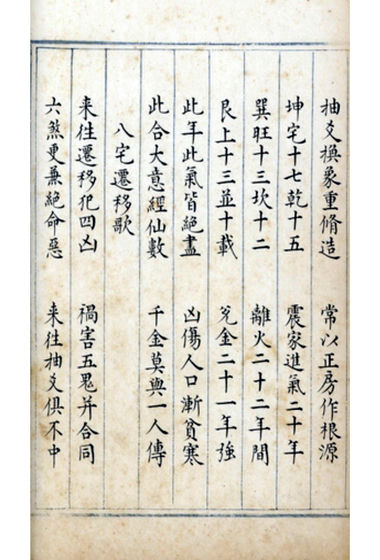 抽爻換象重脩造　常以正房作根源
坤宅十七乾十五　震家進氣二十年
巽旺十三坎十二　離火二十二年間
艮上十三並十載　兌金二十一年強
此年此氣皆絕盡　凶傷人口漸貧寒
此合大意經仙數　千金莫與一人傳
八宅遷移歌
来往遷移犯四凶　禍害五鬼并合同
六煞更兼絕命惡　来往抽爻俱不中